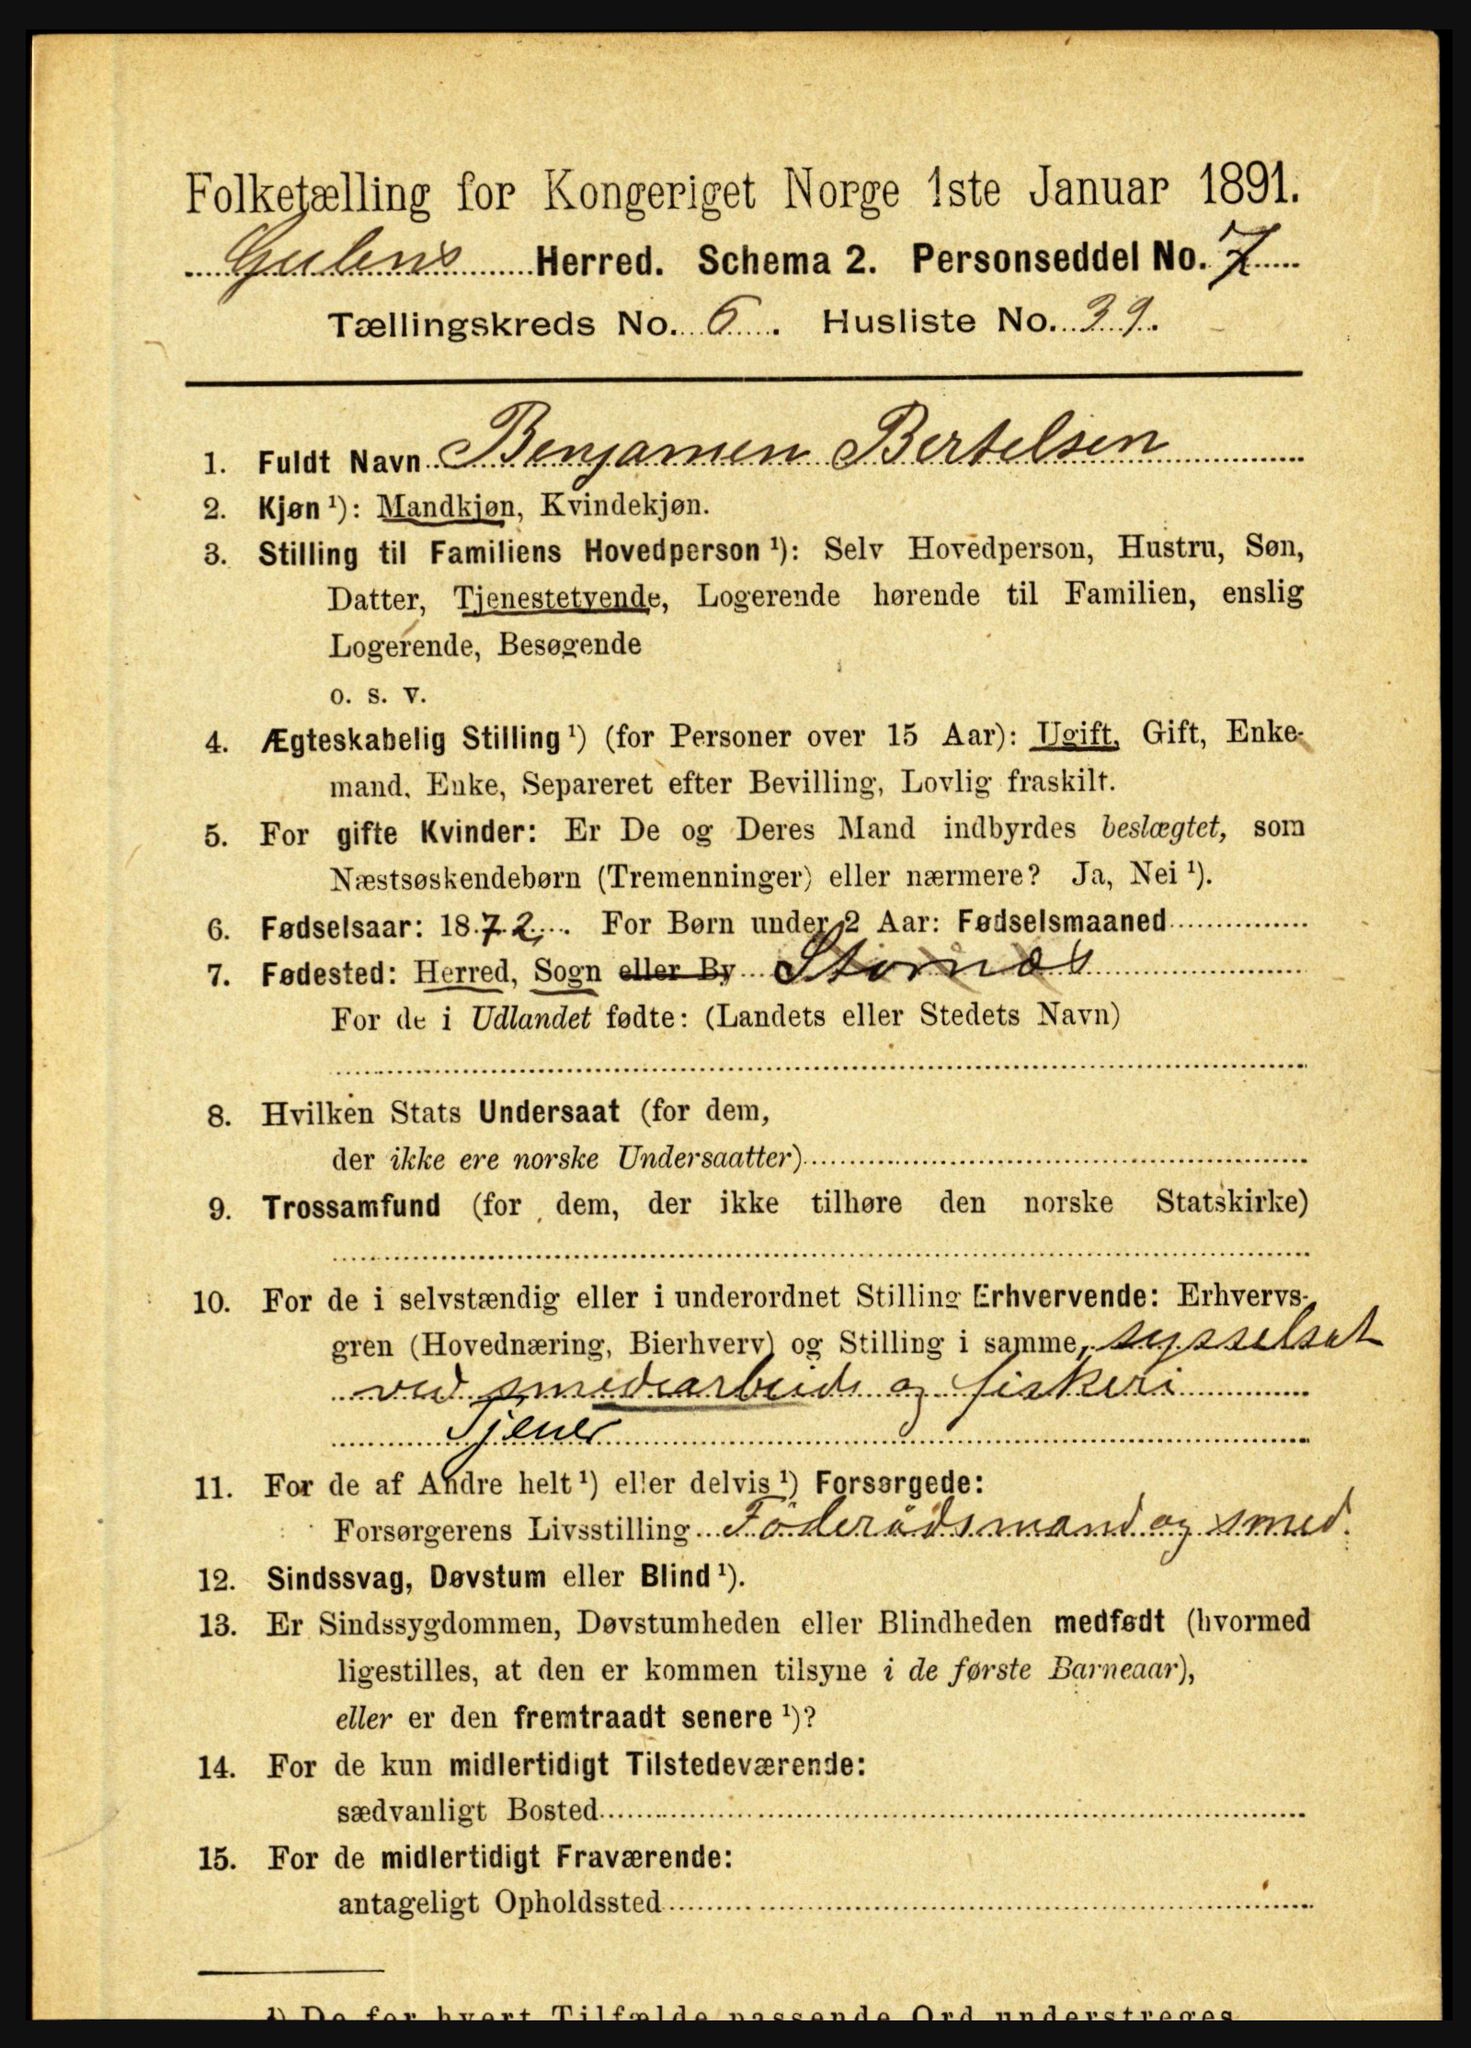 Folketælling for Kongeriget Norge 1ste Januar 1891.
Gulens Herred. Schema 2. Personseddel No. 7
Tællingskreds No. 6. Husliste No. 39.
1. Fuldt Navn Benjamen Bertelsen
2. Kjøn ¹): Mandkjøn, Kvindekjøn.
3. Stilling til Familiens Hovedperson ¹): Selv Hovedperson, Hustru, Søn,
Datter, Tjenestetyende, Logerende hørende til Familien, enslig
Logerende, Besøgende
o. s. v.
4. Ægteskabelig Stilling ¹) (for Personer over 15 Aar): Ugift, Gift, Enke-
mand, Enke, Separeret efter Bevilling, Lovlig fraskilt.
5. For gifte Kvinder: Er De og Deres Mand indbyrdes beslægtet, som
Næstsøskendebørn (Tremenninger) eller nærmere? Ja, Nei ¹).
6. Fødselsaar: 1872. For Børn under 2 Aar: Fødselsmaaned
7. Fødested: Herred, Sogn eller By Stornæs
For de i Udlandet fødte: (Landets eller Stedets Navn)
8. Hvilken Stats Undersaat (for dem,
der ikke ere norske Undersaatter)
9. Trossamfund (for dem, der ikke tilhøre den norske Statskirke)
10. For de i selvstændig eller i underordnet Stilling Erhvervende: Erhvervs-
gren (Hovednæring, Bierhverv) og Stilling i samme, sysselsat
ved smedarbeide og fiskeri
Tjener
11. For de af Andre helt ¹) eller delvis ¹) Forsørgede:
Forsørgerens Livsstilling Föderådsmand og smed.
12. Sindssvag, Døvstum eller Blind ¹).
13. Er Sindssygdommen, Døvstumheden eller Blindheden medfødt (hvormed
ligestilles, at den er kommen tilsyne i de første Barneaar),
eller er den fremtraadt senere ¹)?
14. For de kun midlertidigt Tilstedeværende:
sædvanligt Bosted
15. For de midlertidigt Fraværende:
antageligt Opholdssted
¹) De for hvert Tilfælde passende Ord understreges